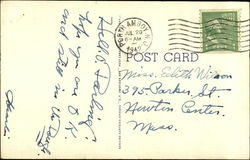 Hello Darling
Hope you are O.K.
and still in the
PERTH AMBOY, N.J.
JUL 20
6 - AM
POST CARD
Miss. Edith Wilson
395 Parker St.
Newton Center.
Mass.